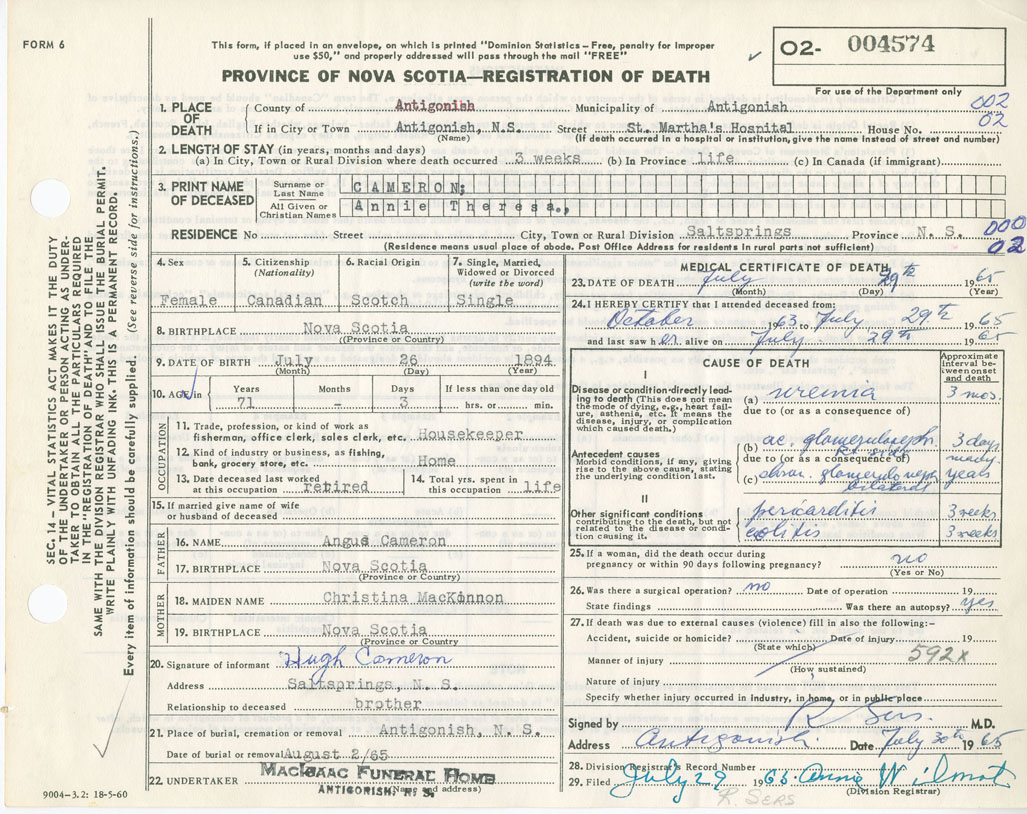 FORM 6
This form, if placed in an envelope, on which is printed "Dominion Statistics – Free, penalty for improper
use $50," and properly addressed will pass through the mail "FREE"
O2- 004574
For use of the Department only
PROVINCE OF NOVA SCOTIA—REGISTRATION OF DEATH
002
02
1. PLACE OF DEATH
County of Antigonish Municipality of Antigonish
If in City or Town Antigonish, N.S. Street St. Martha's Hospital House No.
(Name) (If death occurred in a hospital or institution, give the name instead of street and number)
2. LENGTH OF STAY (in years, months and days)
(a) In City, Town or Rural Division where death occurred 3 weeks (b) In Province life (c) In Canada (if immigrant)
3. PRINT NAME OF DECEASED
Surname or Last Name CAMERON;
All Given or Christian Names Annie Theresa.,
RESIDENCE No Street City, Town or Rural Division Saltsprings Province N. S.
000
02
(Residence means usual place of abode. Post Office Address for residents in rural parts not sufficient)
4. Sex
Female
5. Citizenship
(Nationality)
Canadian
6. Racial Origin
Scotch
7. Single, Married,
Widowed or Divorced
(write the word)
Single
8. BIRTHPLACE Nova Scotia
(Province or Country)
9. DATE OF BIRTH July 26 1894
(Month) (Day) (Year)
10. AGE in
Years Months Days If less than one day old
71 – 3 hrs. or min.
OCCUPATION
11. Trade, profession, or kind of work as
fisherman, office clerk, sales clerk, etc. Housekeeper
12. Kind of industry or business, as fishing,
bank, grocery store, etc. Home
13. Date deceased last worked
at this occupation retired
14. Total yrs. spent in
this occupation life
15. If married give name of wife
or husband of deceased
FATHER
16. NAME Angus Cameron
17. BIRTHPLACE Nova Scotia
(Province or Country)
MOTHER
18. MAIDEN NAME Christina MacKinnon
19. BIRTHPLACE Nova Scotia
(Province or Country
20. Signature of informant Hugh Cameron
Address Saltsprings, N. S.
Relationship to deceased brother
21. Place of burial, cremation or removal Antigonish, N. S.
Date of burial or removal August 2/65
22. UNDERTAKER MacIsaac Funeral Home
ANTIGONISH, N. S. (Name and address)
9004–3.2: 18-5-60
MEDICAL CERTIFICATE OF DEATH
23. DATE OF DEATH July 29th 1965
(Month) (Day) (Year)
24. I HEREBY CERTIFY that I attended deceased from:
October 1963 to July 29th 1965
and last saw her alive on July 29th 1965
CAUSE OF DEATH
Approximate interval between onset and death
I
Disease or condition directly leading to death (This does not mean the mode of dying, e.g., heart failure, asthenia, etc. It means the disease, injury, or complication which caused death.)
(a) uremia 3 mos.
due to (or as a consequence of)
Antecedent causes
Morbid conditions, if any, giving rise to the above cause, stating the underlying condition last.
(b) ac. glomeruloneph. 3 days
due to (or as a consequence of)
(c) chron. glomeruloneph. many years
bilateral
II
Other significant conditions
contributing to the death, but not related to the disease or condition causing it.
pericarditis 3 weeks
colitis 3 weeks
25. If a woman, did the death occur during
pregnancy or within 90 days following pregnancy? no
(Yes or No)
26. Was there a surgical operation? no Date of operation 19
State findings Was there an autopsy? yes
27. If death was due to external causes (violence) fill in also the following:-
Accident, suicide or homicide? Date of injury 19
(State which)
592x
Manner of injury
(How sustained)
Nature of injury
Specify whether injury occurred in industry, in home, or in public place
Signed by R Sers. M.D.
Address Antigonish. Date July 30th 1965
28. Division Registrar's Record Number
29. Filed July 29 1965. Anne Wilmot
(Division Registrar)
R. SERS
SEC. 14 – VITAL STATISTICS ACT MAKES IT THE DUTY
OF THE UNDERTAKER OR PERSON ACTING AS UNDER-
TAKER TO OBTAIN ALL THE PARTICULARS REQUIRED
IN THE "REGISTRATION OF DEATH" AND TO FILE THE
SAME WITH THE DIVISION REGISTRAR WHO SHALL ISSUE THE BURIAL PERMIT.
WRITE PLAINLY WITH UNFADING INK. THIS IS A PERMANENT RECORD.
Every item of information should be carefully supplied. (See reverse side for instructions.)